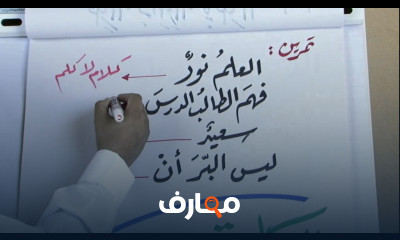 تمرين:
العلمُ نورٌ ← كلام لا كلم
فهمَ الطالبُ الدرسَ
سعيدٌ
ليس البرَّ أنْ
معارف